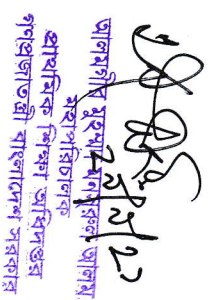 আলমগীর মুহম্মদ মনসুরুল আলম
মহাপরিচালক
প্রাথমিক শিক্ষা অধিদপ্তর
গণপ্রজাতন্ত্রী বাংলাদেশ সরকার